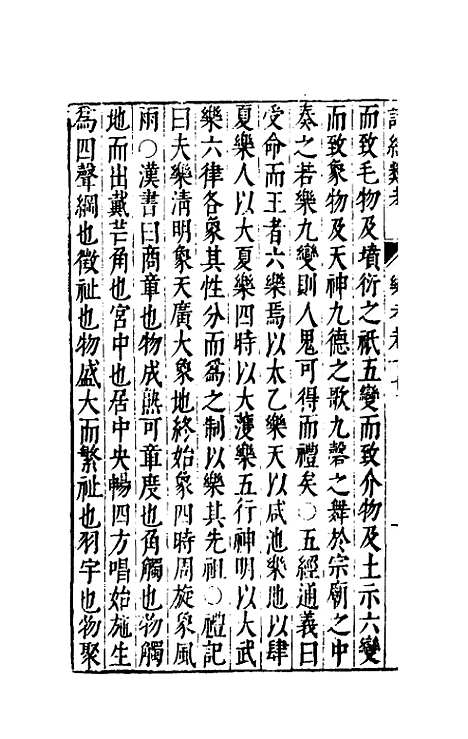 詩經類考
樂考卷
而致毛物及墳衍之祇五變而致介物及土示六變
而致象物及天神九德之歌九磬之舞於宗廟之中
奏之若樂九變則人鬼可得而禮矣○五經通義曰
受命而王者六樂焉以太乙樂天以咸池樂地以肆
夏樂人以大夏樂四時以大濩樂五行神明以大武
樂六律各象其性分而爲之制以樂其先祖○禮記
曰夫樂清明象天廣大象地終始象四時周旋象風
雨○漢書曰商章也物成熟可章度也角觸也物觸
地而出戴芒角也宮中也居中央暢四方唱始施生
爲四聲綱也徵祉也物盛大而繁祉也羽宇也物聚